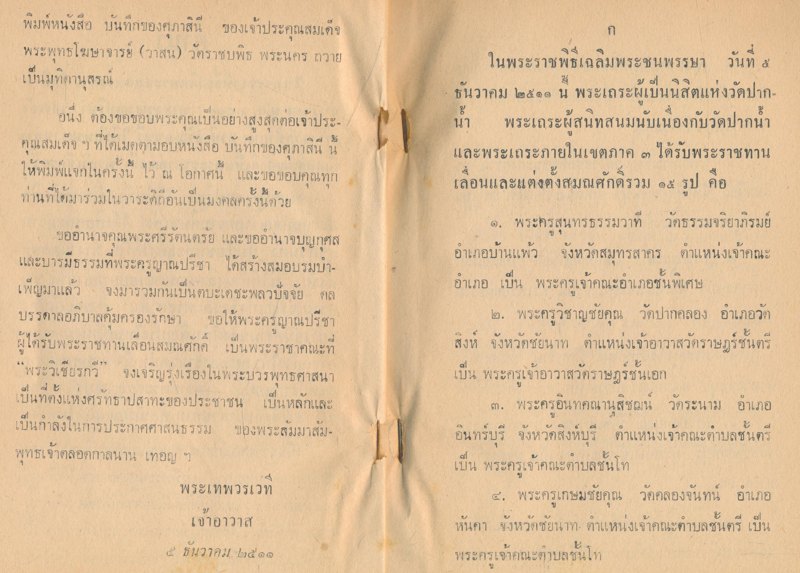 พิมพ์หนังสือ บันทึกของศุภาสินี ของเจ้าประคุณสมเด็จ
พระพุทธโฆษาจารย์ (วาสน) วัดราชบพิธ พระนคร ถวาย
เป็นมุทิตานุสรณ์
อนึ่ง ต้องขอขอบพระคุณเป็นอย่างสูงสุดต่อเจ้าประ-
คุณสมเด็จ ฯ ที่ได้เมตตามอบหนังสือ บันทึกของศุภาสินี นี้
ให้พิมพ์แจกในครั้งนี้ ไว้ ณ โอกาศนี้ และขอขอบคุณทุก
ท่านที่ได้มาร่วมในวาระดิถีอันเป็นมงคลครั้งนี้ด้วย
ขออำนาจคุณพระศรีรัตนตรัย และขออำนาจบุญกุศล
และบารมีธรรมที่พระครูญาณปรีชา ได้สร้างสมอบรมบำ-
เพ็ญมาแล้ว จงมารวมกันเป็นตบะเดชะพลวปัจจัย ดล
บรรดาลอภิบาลคุ้มครองรักษา ขอให้พระครูญาณปรีชา
ผู้ได้รับพระราชทานเลื่อนสมณศักดิ์ เป็นพระราชาคณะที่
"พระวิเชียรกวี" จงเจริญรุ่งเรืองในพระบวรพุทธศาสนา
เป็นที่ตั้งแห่งศรัทธาปสาทะของประชาชน เป็นหลักและ
เป็นกำลังในการประกาศศาสนธรรม ของพระสัมมาสัม-
พุทธเจ้าตลอดกาลนาน เทอญ ฯ
พระเทพวรเวที
เจ้าอาวาส
๕ ธันวาคม ๒๕๑๑
ก
ในพระราชพิธีเฉลิมพระชนพรรษา วันที่ ๕
ธันวาคม ๒๕๑๑ นี้ พระเถระผู้เป็นนิสิตแห่งวัดปาก-
น้ำ พระเถระผู้สนิทสนมนับเนื่องกับวัดปากน้ำ
และพระเถระภายในเขตภาค ๓ ได้รับพระราชทาน
เลื่อนและแต่งตั้งสมณศักดิ์รวม ๑๕ รูป คือ
๑. พระครูสุนทรธรรมวาที วัดธรรมจริยาภิรมย์
อำเภอบ้านแพ้ว จังหวัดสมุทรสาคร ตำแหน่งเจ้าคณะ
อำเภอ เป็น พระครูเจ้าคณะอำเภอชั้นพิเศษ
๒. พระครูวิชาญชัยคุณ วัดปากคลอง อำเภอวัด
สิงห์ จังหวัดชัยนาท ตำแหน่งเจ้าอาวาสวัดราษฎร์ชั้นตรี
เป็น พระครูเจ้าอาวาสวัดราษฎร์ชั้นเอก
๓. พระครูอินทคณานุสิชฌน์ วัดระนาม อำเภอ
อินทร์บุรี จังหวัดสิงห์บุรี ตำแหน่งเจ้าคณะตำบลชั้นตรี
เป็น พระครูเจ้าคณะตำบลชั้นโท
๔. พระครูเกษมชัยคุณ วัดคลองจันทน์ อำเภอ
หันคา จังหวัดชัยนาท ตำแหน่งเจ้าคณะตำบลชั้นตรี เป็น
พระครูเจ้าคณะตำบลชั้นโท